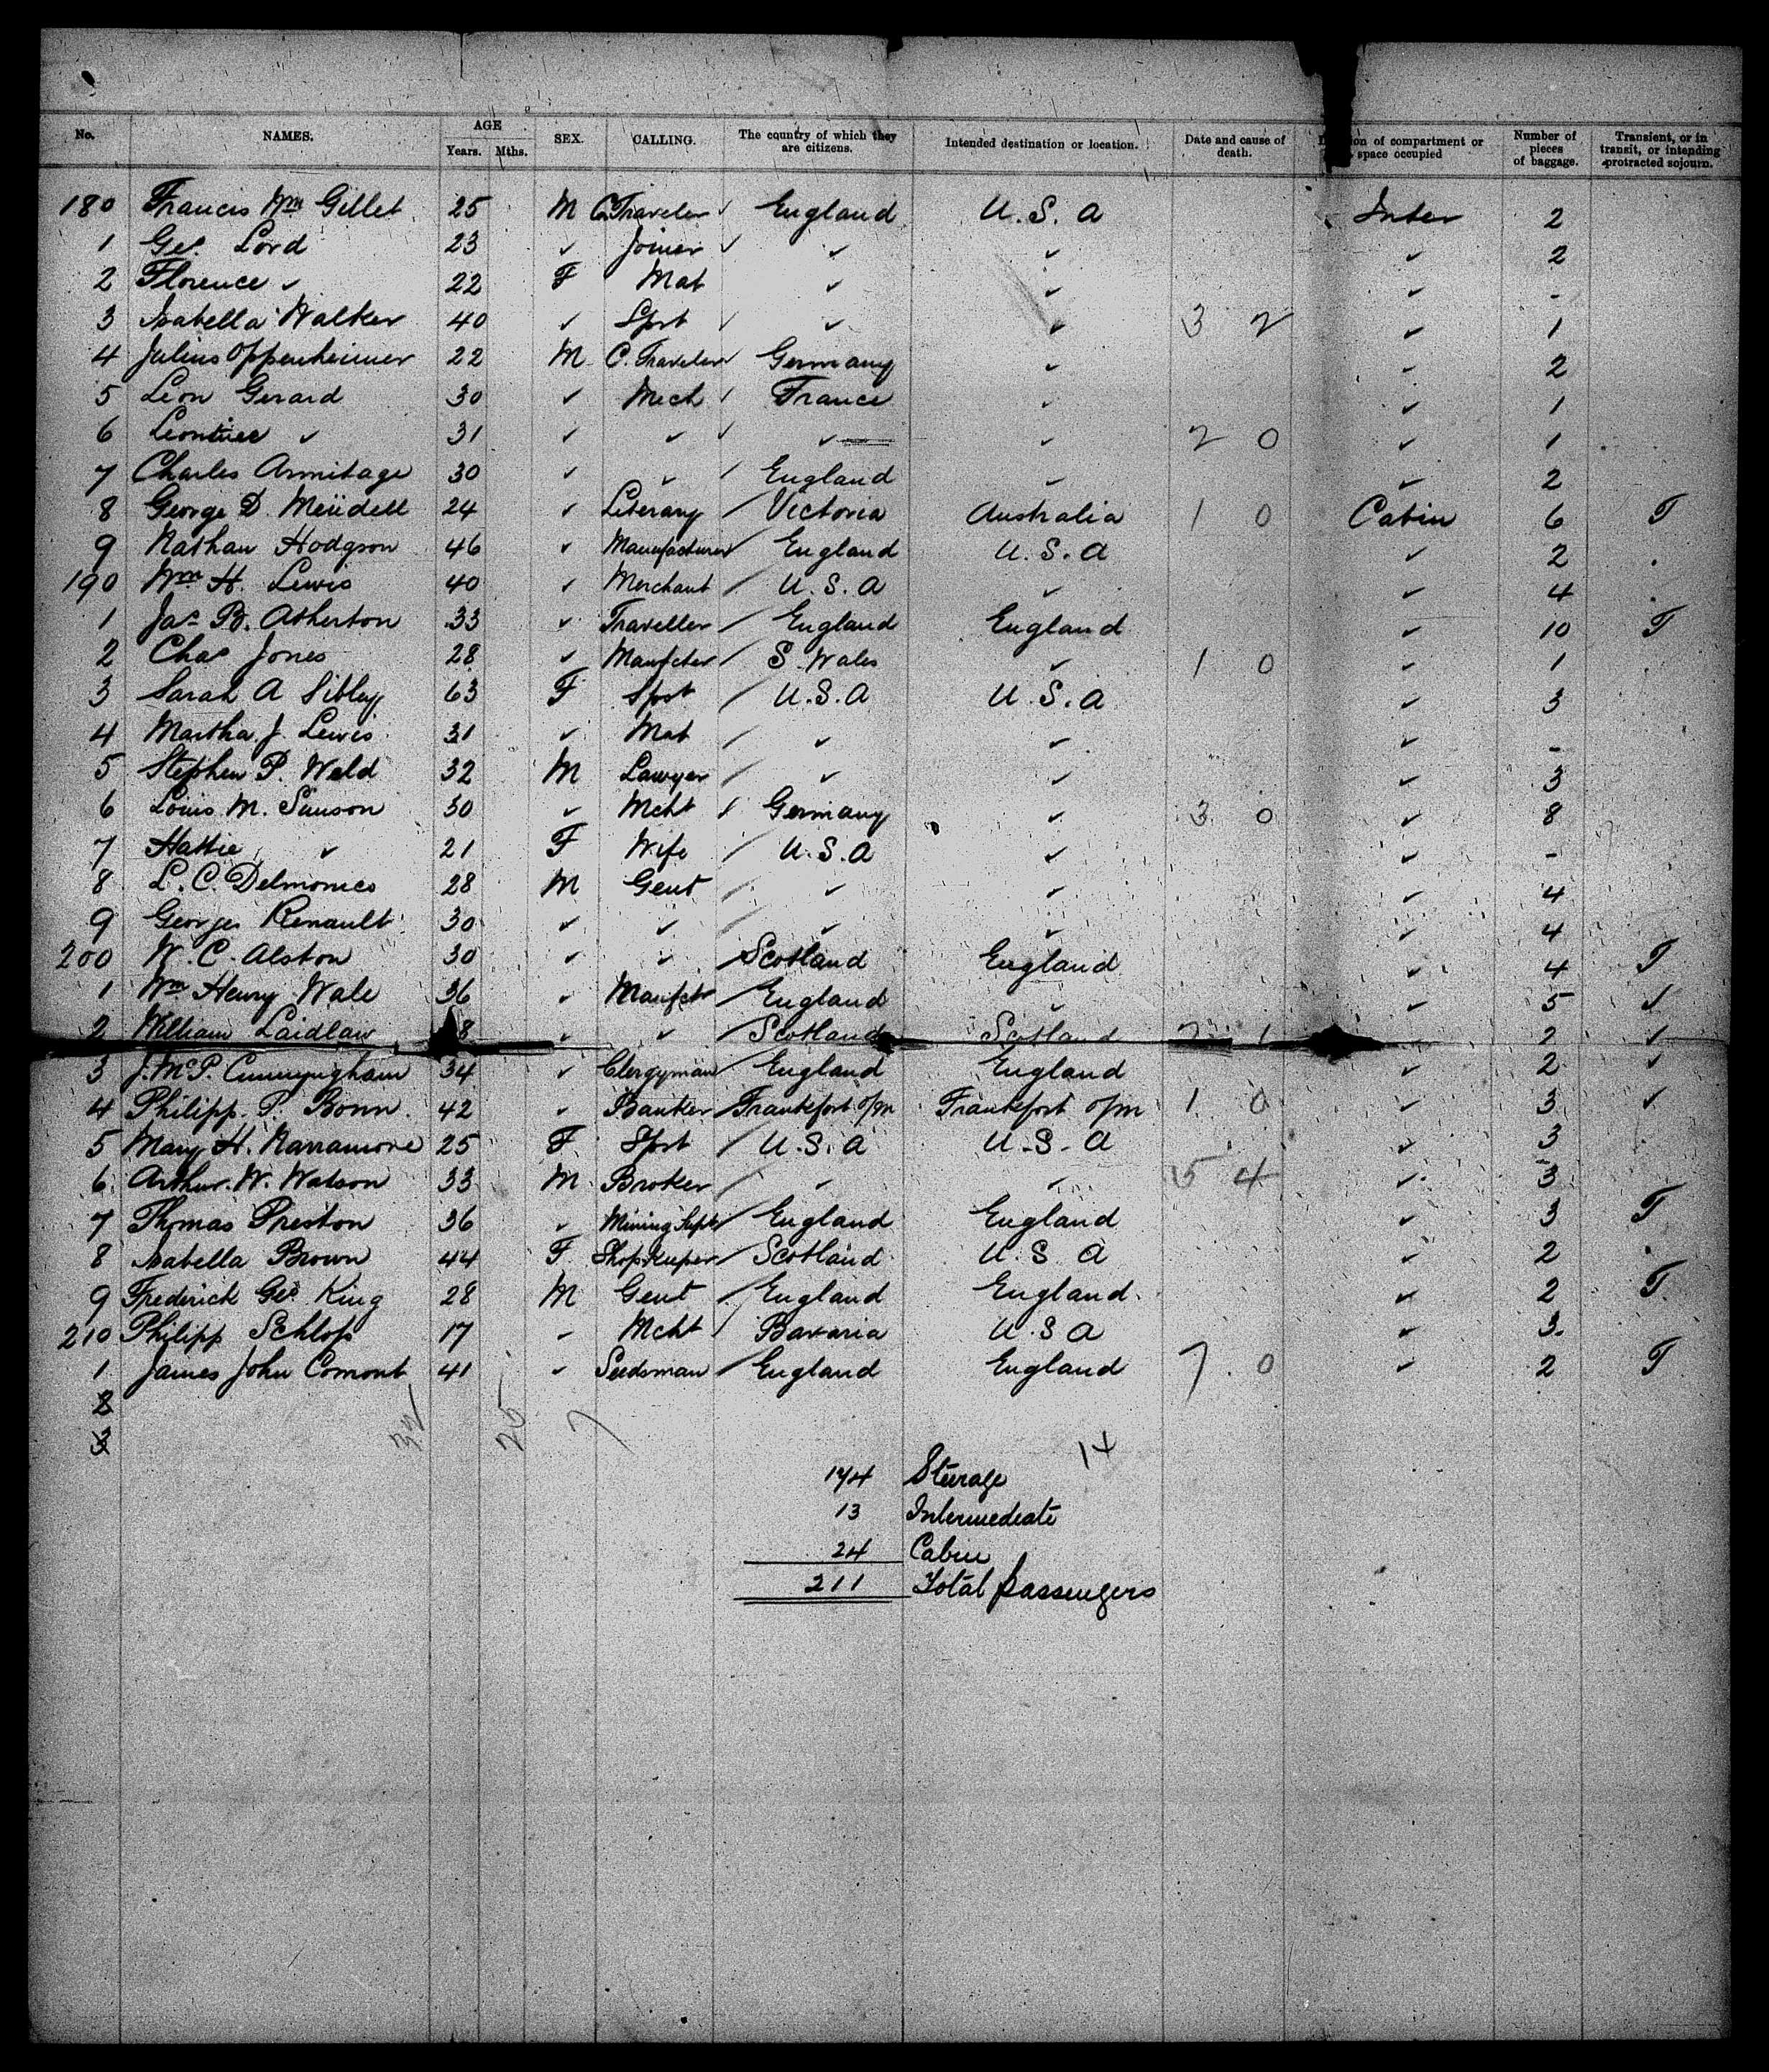 No. NAMES. AGE Years. Mths. SEX. CALLING. The country of which they are citizens. Intended destination or location. Date and cause of death. of compartment or space occupied Number of pieces of baggage. Transient, or in transit, or intending protracted sojourn.
180 Francis Wm Gillet 25 M C. Traveler ✓ England U.S.A Inter 2
1 Geo. Lord 23 ✓ Joiner ✓ ✓ ✓ ✓ 2
2 Florence ✓ 22 F Mat ✓ ✓ ✓ -
3 Isabella Walker 40 ✓ Spst ✓ ✓ ✓ 3 2 ✓ 1
4 Julius Oppenheimer 22 M C. Traveler ✓ Germany ✓ ✓ 2
5 Leon Gerard 30 ✓ Mech ✓ France ✓ ✓ 1
6 ✓ 31 ✓ ✓ ✓ ✓ ✓ 2 0 ✓ 1
7 Charles Armitage 30 ✓ ✓ / England ✓ ✓ 2
8 George D. Meudell 24 ✓ Literary / Victoria Australia 1 0 Cabin 6 T
9 Nathan Hodgson 46 ✓ Manufacturer / England U.S.A ✓ 2 .
190 Wm H. Lewis 40 ✓ Merchant / U.S.A ✓ ✓ 4 .
1 Jas B. Atherton 33 ✓ Traveller / England England ✓ 10 T
2 Chas Jones 28 ✓ Manfcter / S. Wales ✓ 1 0 ✓ 1 .
3 Sarah A Sibley 63 F Spst / U.S.A U.S.A ✓ 3
4 Martha J. Lewis 31 ✓ Mat / ✓ ✓ ✓ -
5 Stephen P. Weld 32 M Lawyer / ✓ ✓ ✓ 3
6 Louis M. Simson 30 ✓ Mcht / Germany ✓ 3 0 ✓ 8
7 Hattie ✓ 21 F Wife / U.S.A ✓ ✓ -
8 L. C. Delmonico 28 M Gent / ✓ ✓ ✓ 4
9 George Renault 30 ✓ ✓ / ✓ ✓ ✓ 4
200 W. C. Alston 30 ✓ ✓ / Scotland England ✓ 4 T
1 Wm Henry Wale 36 ✓ Manfctr / England ✓ ✓ 5 ✓
2 William Laidlaw 8 ✓ ✓ / Scotland Scotland 1 ✓ 2 ✓
3 J. McP. Cunningham 34 ✓ Clergyman / England England ✓ 2 ✓
4 Philipp. P. Bonn 42 ✓ Banker / Frankfort o/m Frankfort o/m 1 0 ✓ 3 ✓
5 Mary H. Narramore 25 F Spst / U.S.A U.S.A ✓ 3 .
6 Arthur. W. Watson 33 M Broker / ✓ ✓ 5 4 ✓ 3
7 Thomas Preston 36 ✓ Mining Supt / England England ✓ 3 T
8 Isabella Brown 44 F Shopkeeper / Scotland U.S A ✓ 2 .
9 Frederick Geo. King 28 M Gent / England England ✓ 2 T.
210 Philipp Schloss 17 ✓ Mcht / Bavaria U.S A ✓ 3.
1 James John Comont 41 ✓ Seedsman / England England 7 0 ✓ 2 T
2
3 32 25 7
174 Steerage 14
13 Intermediate
24 Cabin
211 Total passengers